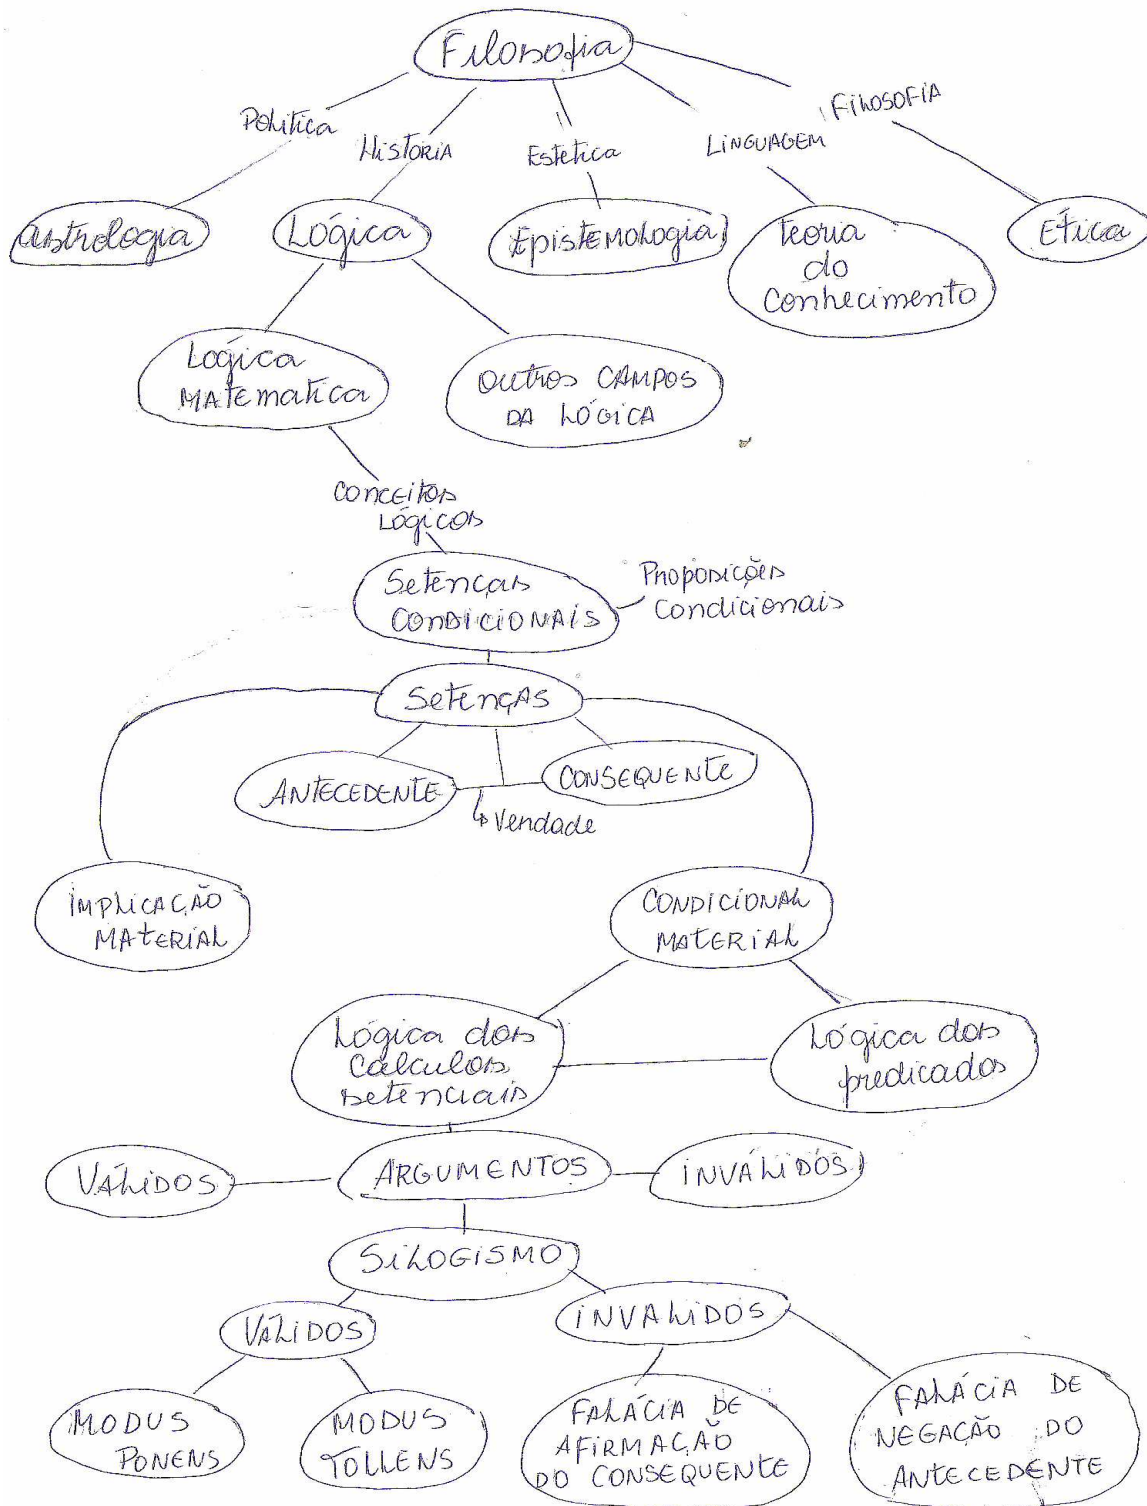 Filosofia
Política
História
Estetica
Linguagem
Filosofia
Astrologia
Lógica
Epistemologia
Teoria
do
Conhecimento
Ética
Lógica
Matematica
Outros Campos
da Lógica
Conceitos
Lógicos
Setenças
Condicionais
Proposições
Condicionais
Setenças
Antecedente
Consequente
Verdade
Implicação
Material
Condicional
Material
Lógica dos
Cálculos
setenciais
Lógica dos
predicados
Válidos
Argumentos
Inválidos
Silogismo
Válidos
Invalidos
Modus
Ponens
Modus
Tollens
Falácia de
Afirmação
do Consequente
Falácia de
Negação do
Antecedente